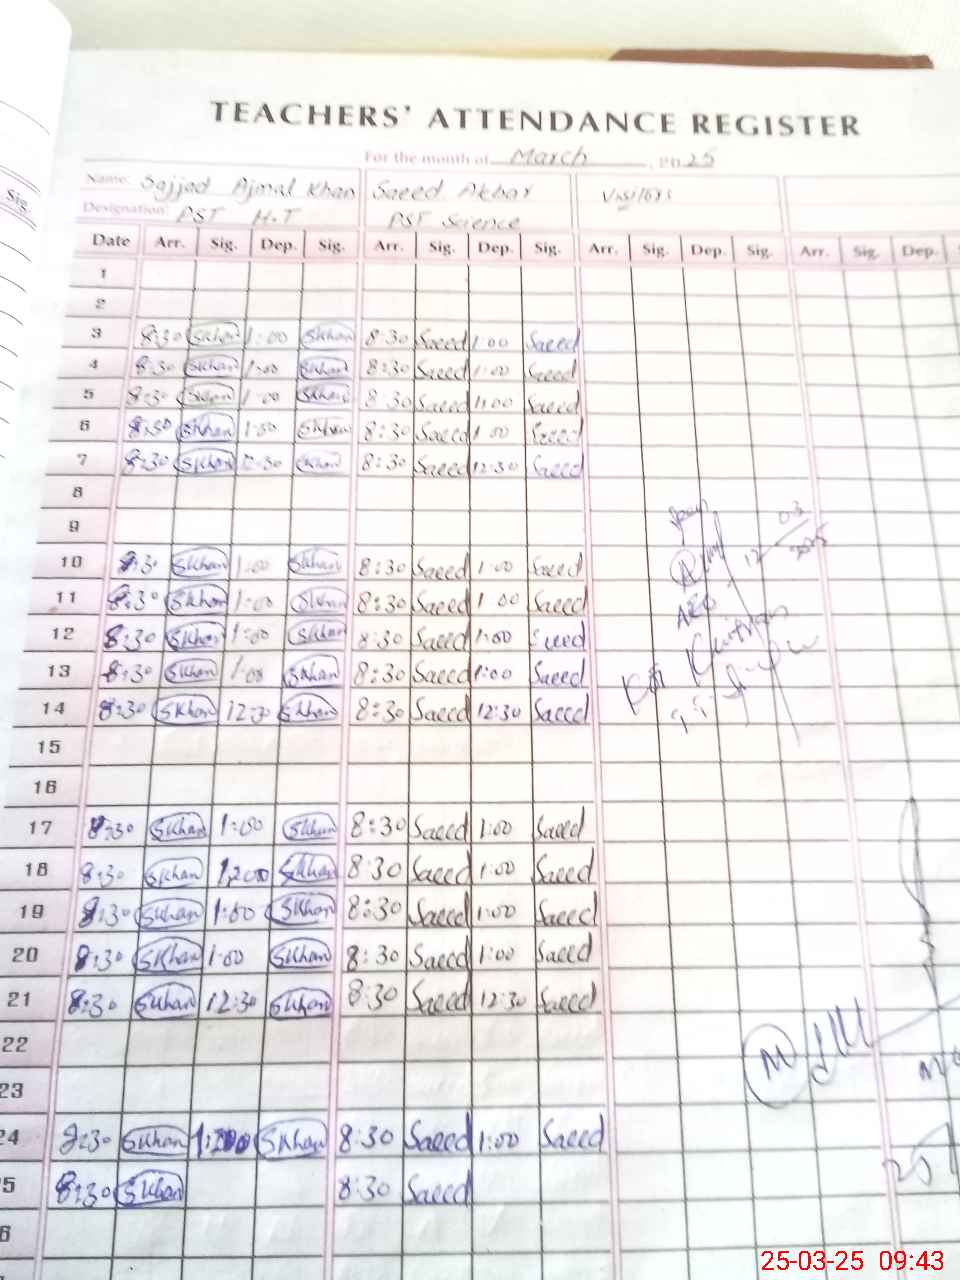 TEACHERS' ATTENDANCE REGISTER
For the month of March, 2025
Name: Sajjad Ajmal Khan Saeed Akbar Visitors
Designation: PST H.T PST Science
Sig.
Date Arr. Sig. Dep. Sig. Arr. Sig. Dep. Sig. Arr. Sig. Dep. Sig. Arr. Sig. Dep.
1
2
3 8:30 SKhan 1:00 SKhan 8:30 Saeed 1:00 Saeed
4 8:30 SKhan 1:00 SKhan 8:30 Saeed 1:00 Saeed
5 8:30 SKhan 1:00 SKhan 8:30 Saeed 1:00 Saeed
6 8:30 SKhan 1:00 SKhan 8:30 Saeed 1:00 Saeed
7 8:30 SKhan 12:30 SKhan 8:30 Saeed 12:30 Saeed
8
9
10 8:30 SKhan 1:00 SKhan 8:30 Saeed 1:00 Saeed
11 8:30 SKhan 1:00 SKhan 8:30 Saeed 1:00 Saeed
12 8:30 SKhan 1:00 SKhan 8:30 Saeed 1:00 Saeed
13 8:30 SKhan 1:00 SKhan 8:30 Saeed 1:00 Saeed
14 8:30 SKhan 12:30 SKhan 8:30 Saeed 12:30 Saeed
12 03 2025
15
16
17 8:30 SKhan 1:00 SKhan 8:30 Saeed 1:00 Saeed
18 8:30 SKhan 1:00 SKhan 8:30 Saeed 1:00 Saeed
19 8:30 SKhan 1:00 SKhan 8:30 Saeed 1:00 Saeed
20 8:30 SKhan 1:00 SKhan 8:30 Saeed 1:00 Saeed
21 8:30 SKhan 12:30 SKhan 8:30 Saeed 12:30 Saeed
22
23
24 8:30 SKhan 1:00 SKhan 8:30 Saeed 1:00 Saeed
5 8:30 SKhan 8:30 Saeed
6
25-03-25 09:43